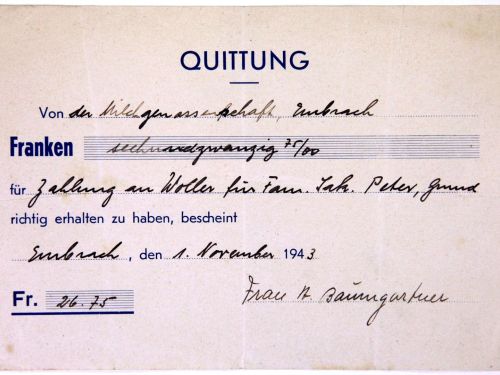 QUITTUNG
Von der Milchgenossenschaft, Embrach
Franken sechsundzwanzig 75/00
für Zahlung an Woller für Fam. Jak. Peter, Grund
richtig erhalten zu haben, bescheint
Embrach, den 1. November 1943
Fr. 26.75 Frau A Baumgartner